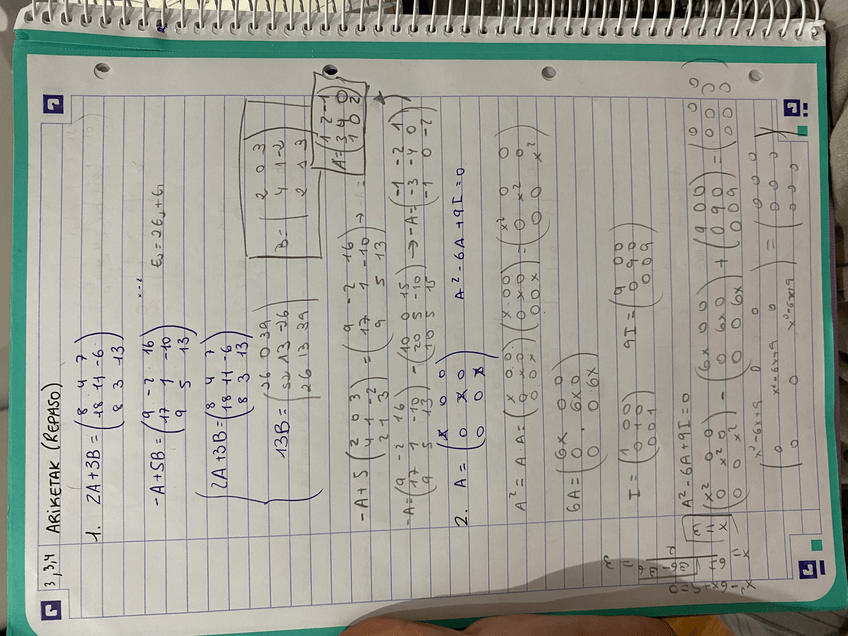 3,3,4 ARIKETAK (REPASO)
1. 2A+3B = ( 8 4 7
18 11 -6
8 3 13 )
-A+5B = ( 9 -2 16
17 1 -10
9 5 13 )
E₂ = 2E₂ + E₁
{ 2A+3B = ( 8 4 7
18 11 -6
8 3 13 )
13B = ( 26 0 39
52 13 -26
26 13 39 )
B = ( 2 0 3
4 1 -2
2 1 3 )
-A+5 ( 2 0 3
4 1 -2
2 1 3 ) = ( 9 -2 16
17 1 -10
9 5 13 ) →
A = ( 1 2 -1
3 4 0
1 0 2 )
-A = ( 9 -2 16
17 1 -10
9 5 13 ) - ( 10 0 15
20 5 -10
10 5 15 ) → -A = ( -1 -2 1
-3 -4 0
-1 0 -2 )
2. A = ( x 0 0
0 x 0
0 0 x ) A² - 6A + 9I = 0
A² = A·A = ( x 0 0
0 x 0
0 0 x ) ( x 0 0
0 x 0
0 0 x ) = ( x² 0 0
0 x² 0
0 0 x² )
6A = ( 6x 0 0
0 6x 0
0 0 6x )
I = ( 1 0 0
0 1 0
0 0 1 ) 9I = ( 9 0 0
0 9 0
0 0 9 )
A² - 6A + 9I = 0
( x² 0 0
0 x² 0
0 0 x² ) - ( 6x 0 0
0 6x 0
0 0 6x ) + ( 9 0 0
0 9 0
0 0 9 ) = ( 0 0 0
0 0 0
0 0 0 )
( x²-6x+9 0 0
0 x²-6x+9 0
0 0 x²-6x+9 ) = ( 0 0 0
0 0 0
0 0 0 )
x²-6x+9=0
x = 3